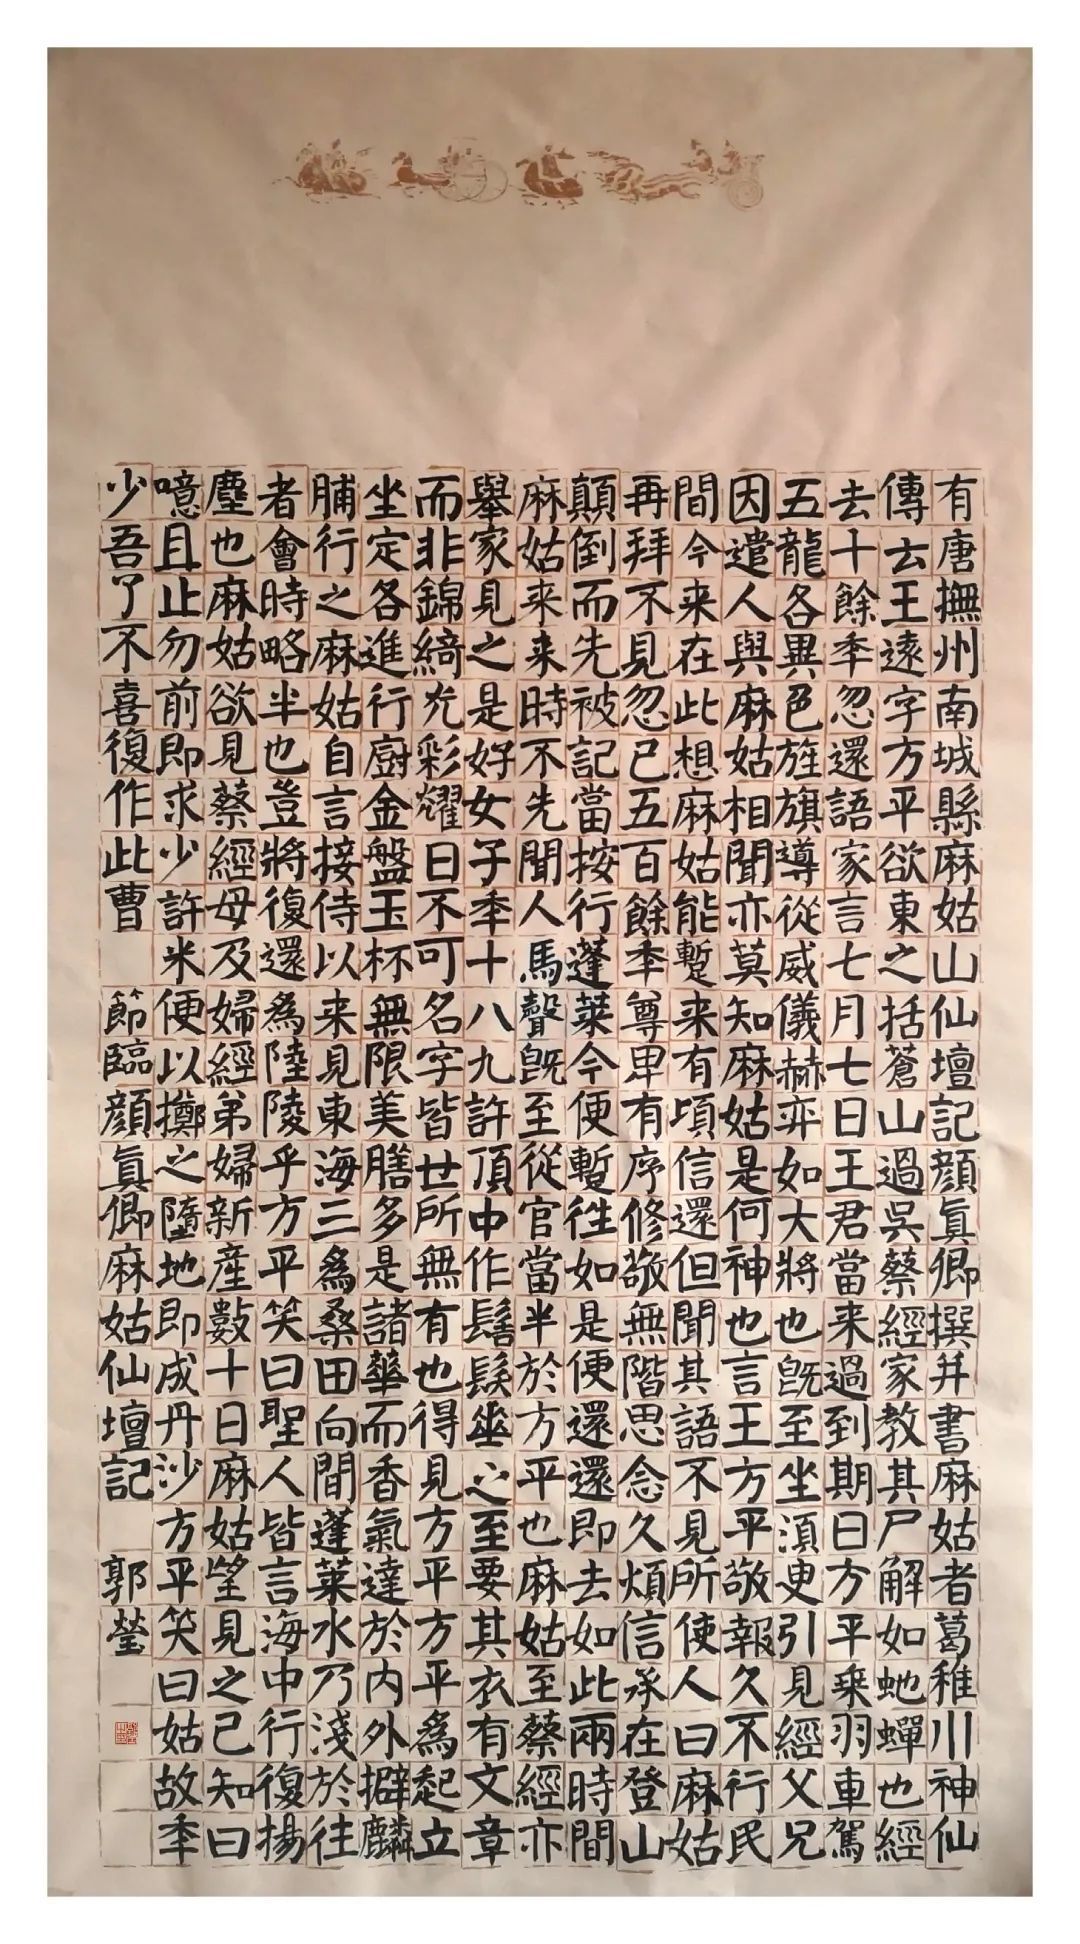 有唐撫州南城縣麻姑山仙壇記顔真卿撰并書麻姑者葛稚川神仙
傳云王遠字方平欲東之括蒼山過吳蔡經家教其尸解如虵蟬也經
去十餘秊忽還語家言七月七日王君當来過到期日方平乗羽車駕
五龍各異色旌旗導從威儀赫弈如大將也既至坐湏臾引見經父兄
因遣人與麻姑相聞亦莫知麻姑是何神也言王方平敬報久不行民
間今来在此想麻姑能蹔来有頃信還但聞其語不見所使人曰麻姑
再拜不見忽已五百餘秊尊卑有序修敬無階思念久煩信承在登山
顛倒而先被記當按行蓬萊今便蹔往如是便還還即去如此兩時間
麻姑来来時不先聞人馬聲既至從官當半於方平也麻姑至蔡經亦
舉家見之是好女子秊十八九許頂中作髻髮垂之至要其衣有文章
而非錦綺光彩耀日不可名字皆世所無有也得見方平方平為起立
坐定各進行厨金盤玉杯無限美膳多是諸華而香氣達於内外擗麟
脯行之麻姑自言接侍以来見東海三為桑田向間蓬萊水乃淺於往
者會時略半也豈將復還為陸陵乎方平笑曰聖人皆言海中行復揚
塵也麻姑欲見蔡經母及婦經弟婦新産數十日麻姑望見之已知曰
噫且止勿前即求少許米便以擲之墮地即成丹沙方平笑曰姑故秊
少吾了不喜復作此曹 節臨顔真卿麻姑仙壇記 郭瑩